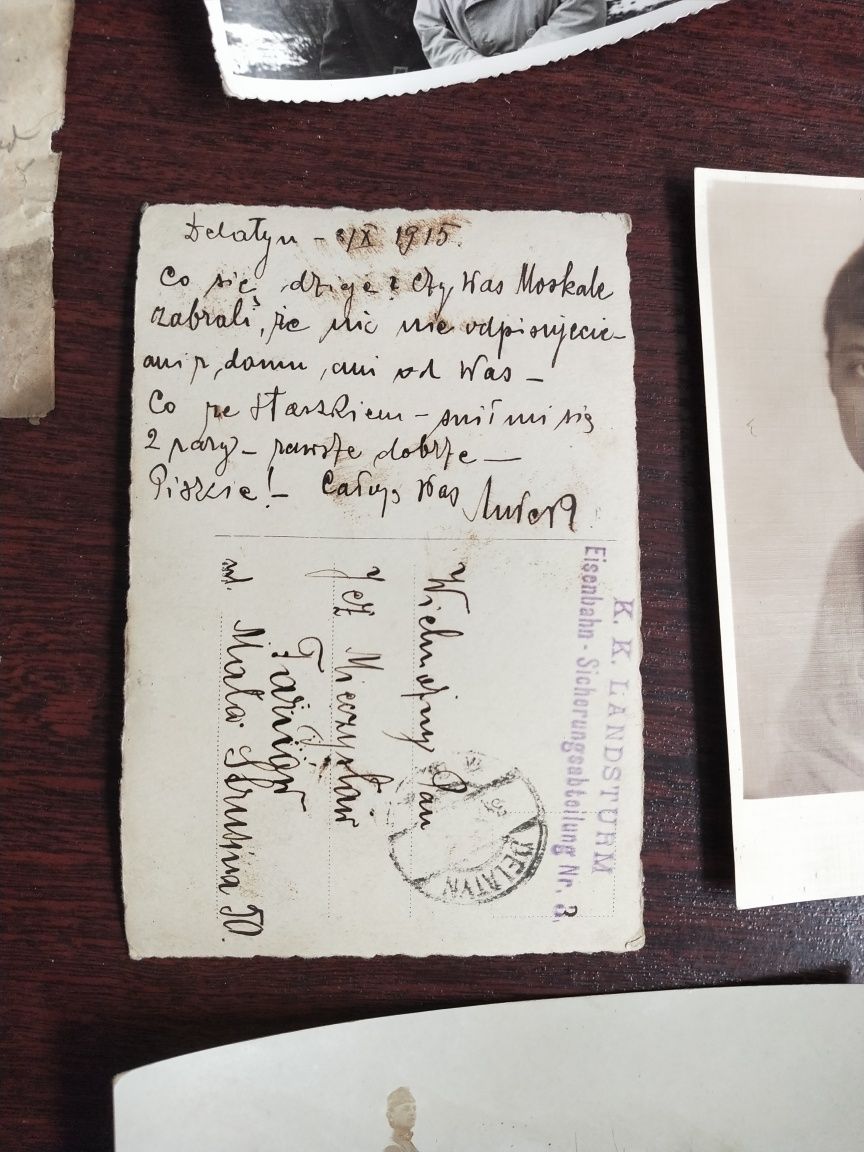 Delatyn - /X 1915.
Co się dzieje? Czy Was Moskale
zabrali, że nic nie odpisujecie -
ani z domu, ani od Was -
Co ze Staszkiem - śnił mi się
2 razy - zawsze dobrze -
Piszcie! - Całuję Was
K. K. LANDSTURM
Eisenbahn-Sicherungsabteilung Nr. 3.
DELATYN
Wielmożny Pan
Jez Mieczysław
Tarnów
ul. Mała Strusina 50.